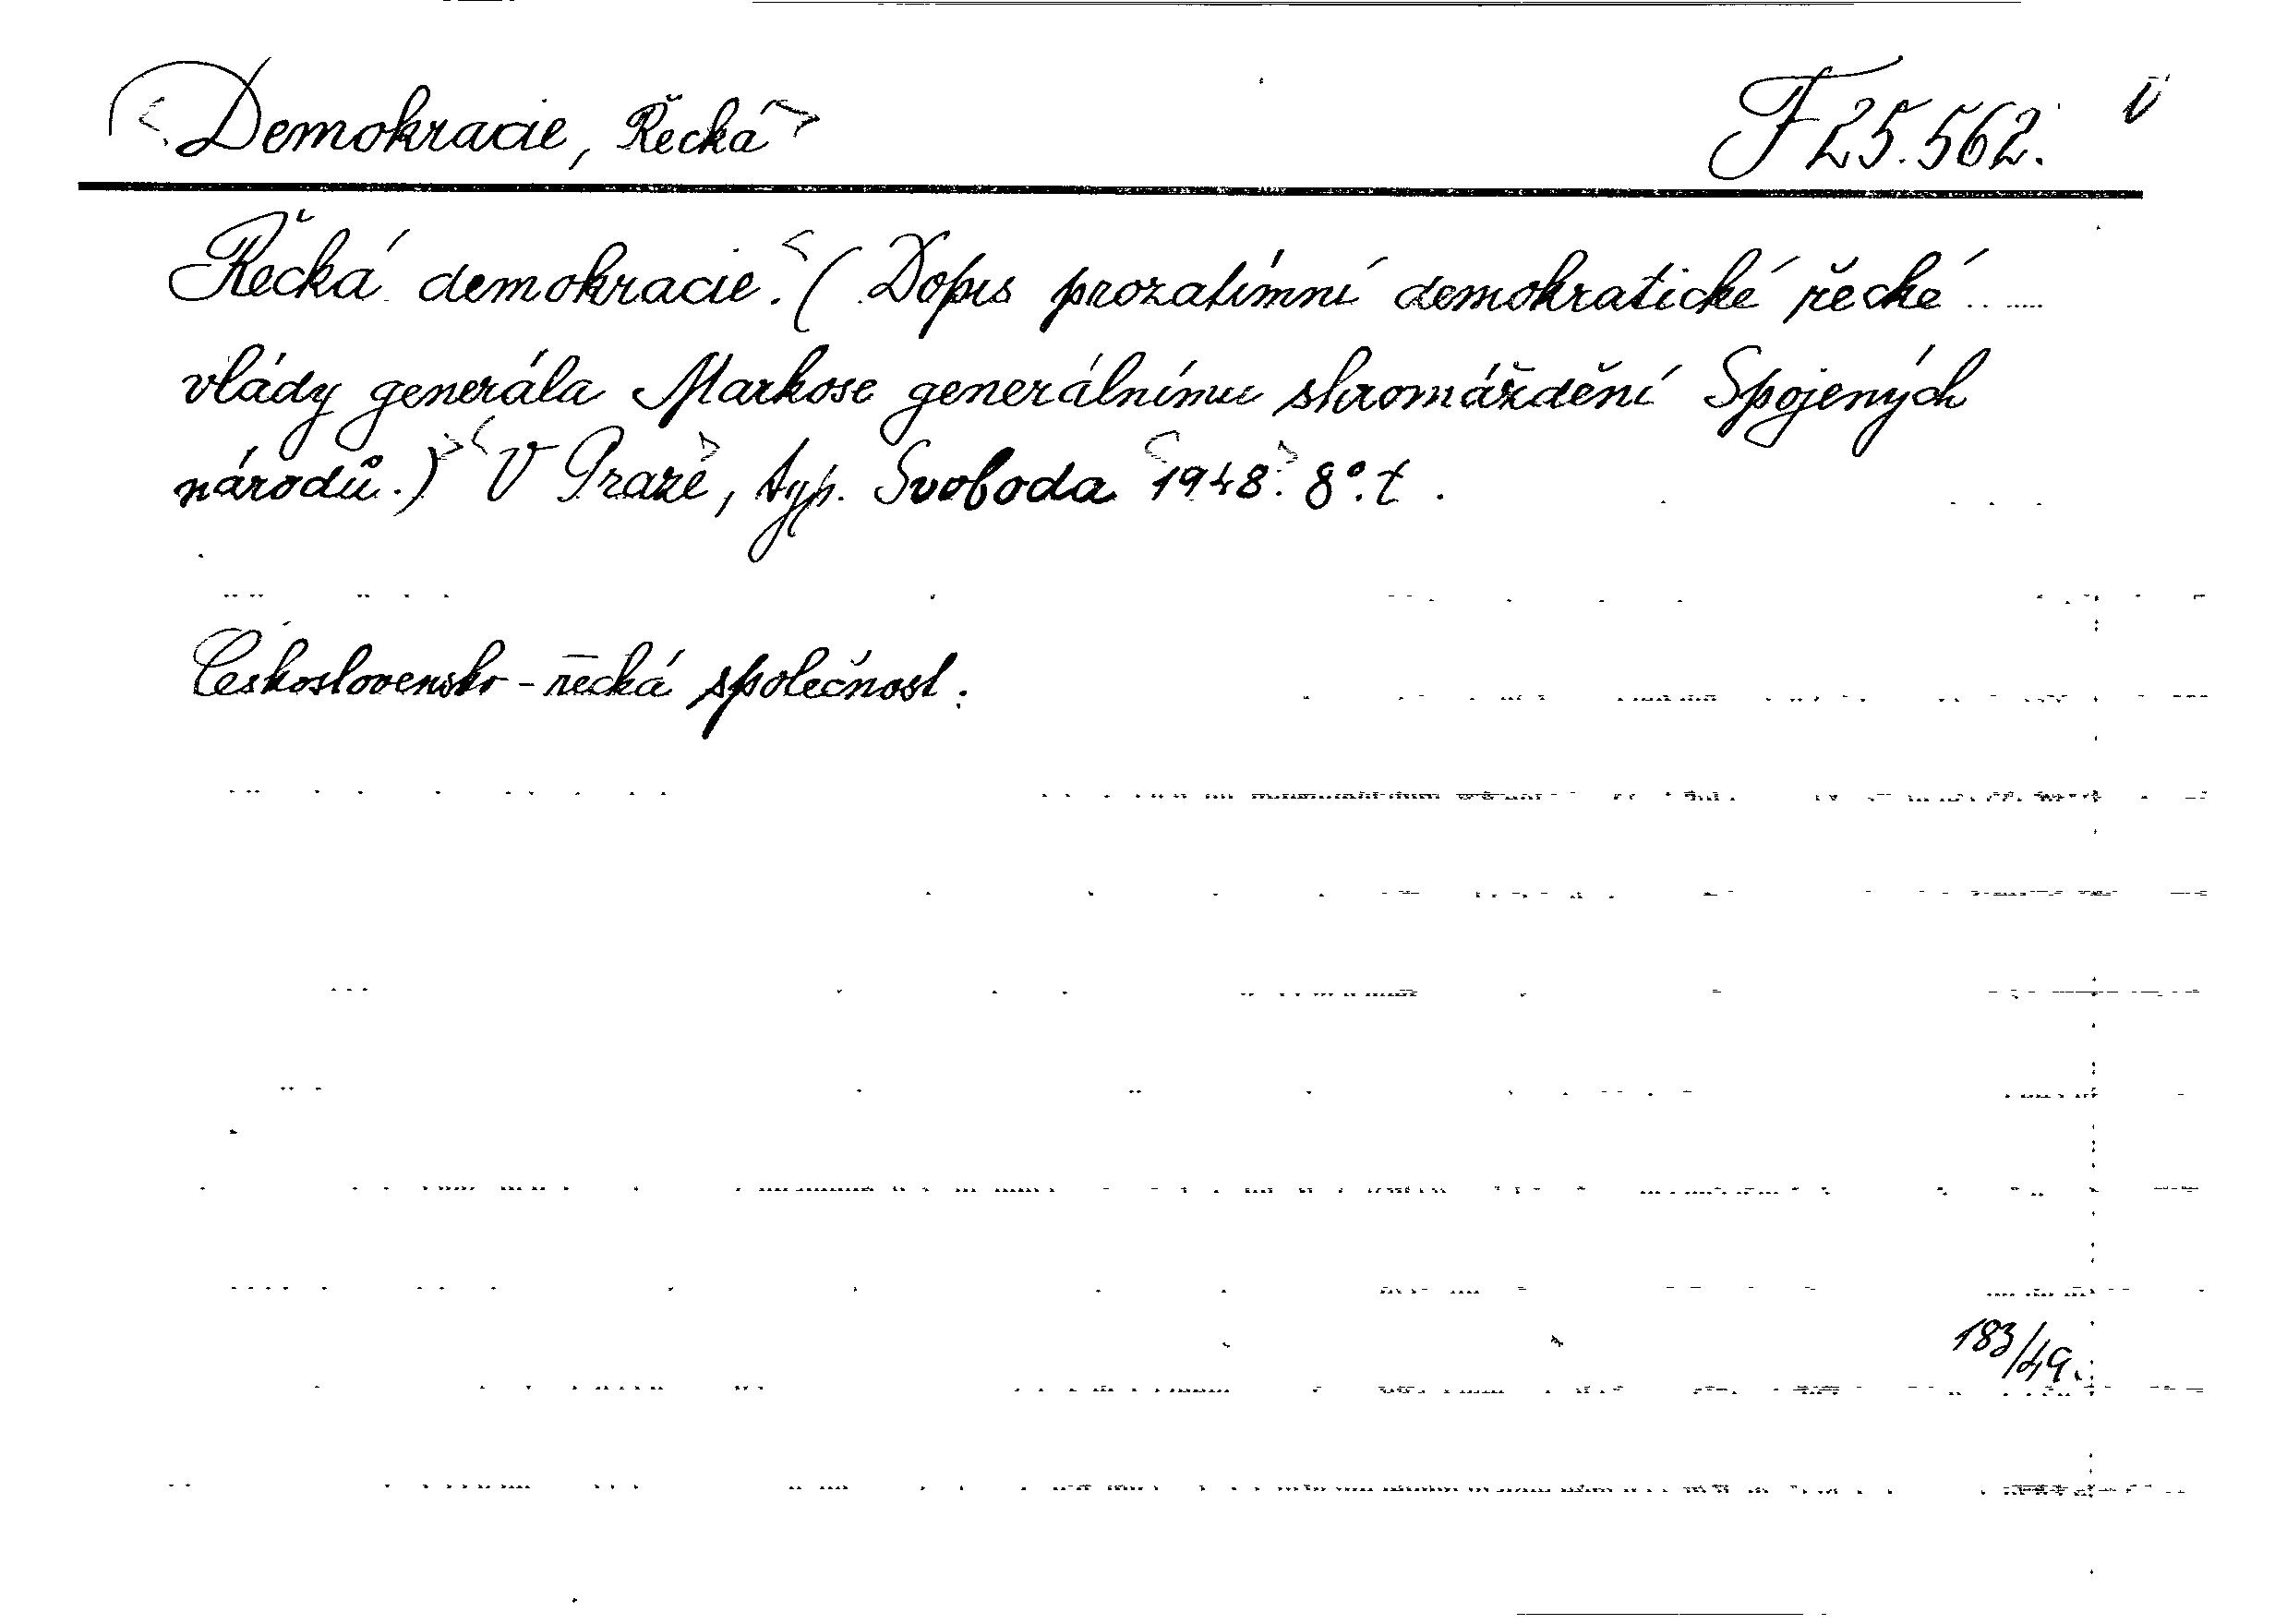 <Demokracie, Řecká> F 25.562.
Řecká demokracie.<(Dopis prozatímní demokratické řecké
vlády generála Markose generálnímu shromáždění Spojených
národů.)> <V Praze>, typ. Svoboda <1948>. 8°.
Československo-řecká společnost.
183/49.